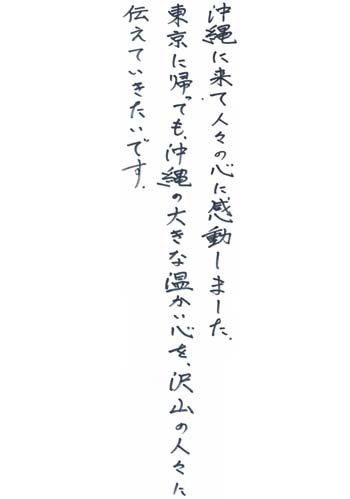 沖縄に来て人々の心に感動しました.
東京に帰っても、沖縄の大きな温かい心を、沢山の人々に
伝えていきたいです.